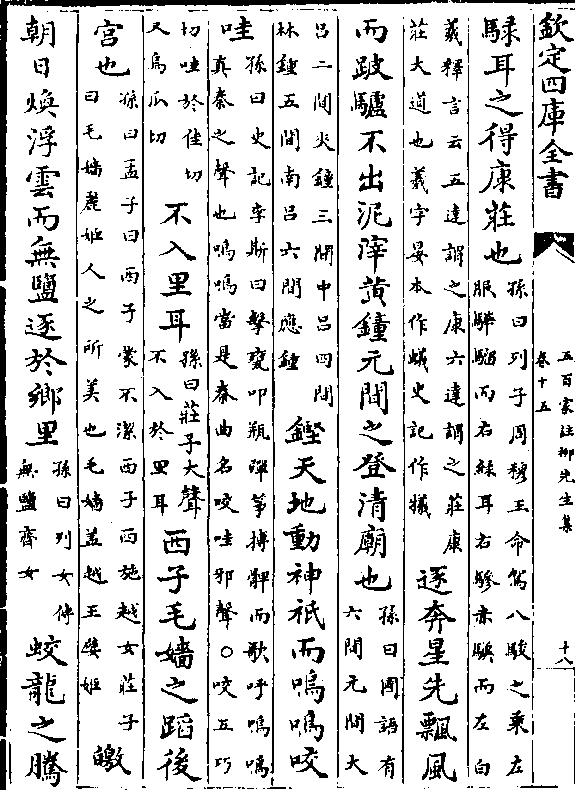 欽定四庫全書
五百家注柳先生集
卷十五
十八
騄耳之得康莊也孫曰列子周穆王命駕八駿之乘左服驊騮而右綠耳右驂赤驥而左白
義釋言云五達謂之康六達謂之莊康莊大道也義字晏本作蟻史記作犠逐奔星先飄風
而跛驢不出泥滓黄鍾元間之登清廟也孫曰國語有六間元間大
吕二間夾鍾三間中吕四間林鍾五間南吕六間應鍾鏗天地動神祇而嗚嗚咬
哇孫曰史記李斯曰擊甕叩瓶彈筝搏髀而歌呼嗚嗚真秦之聲也嗚嗚當是秦曲名咬哇邪聲○咬五巧
切哇於佳切又烏瓜切不入里耳孫曰莊子大聲不入於里耳西子毛嬙之蹈後
宫也孫曰孟子曰西子蒙不潔西子西施越女莊子曰毛嬙麗姬人之所美也毛嬙盖越王嬖姬皦
朝日煥浮雲而無鹽逐於鄉里孫曰列女傳無鹽齊女蛟龍之騰